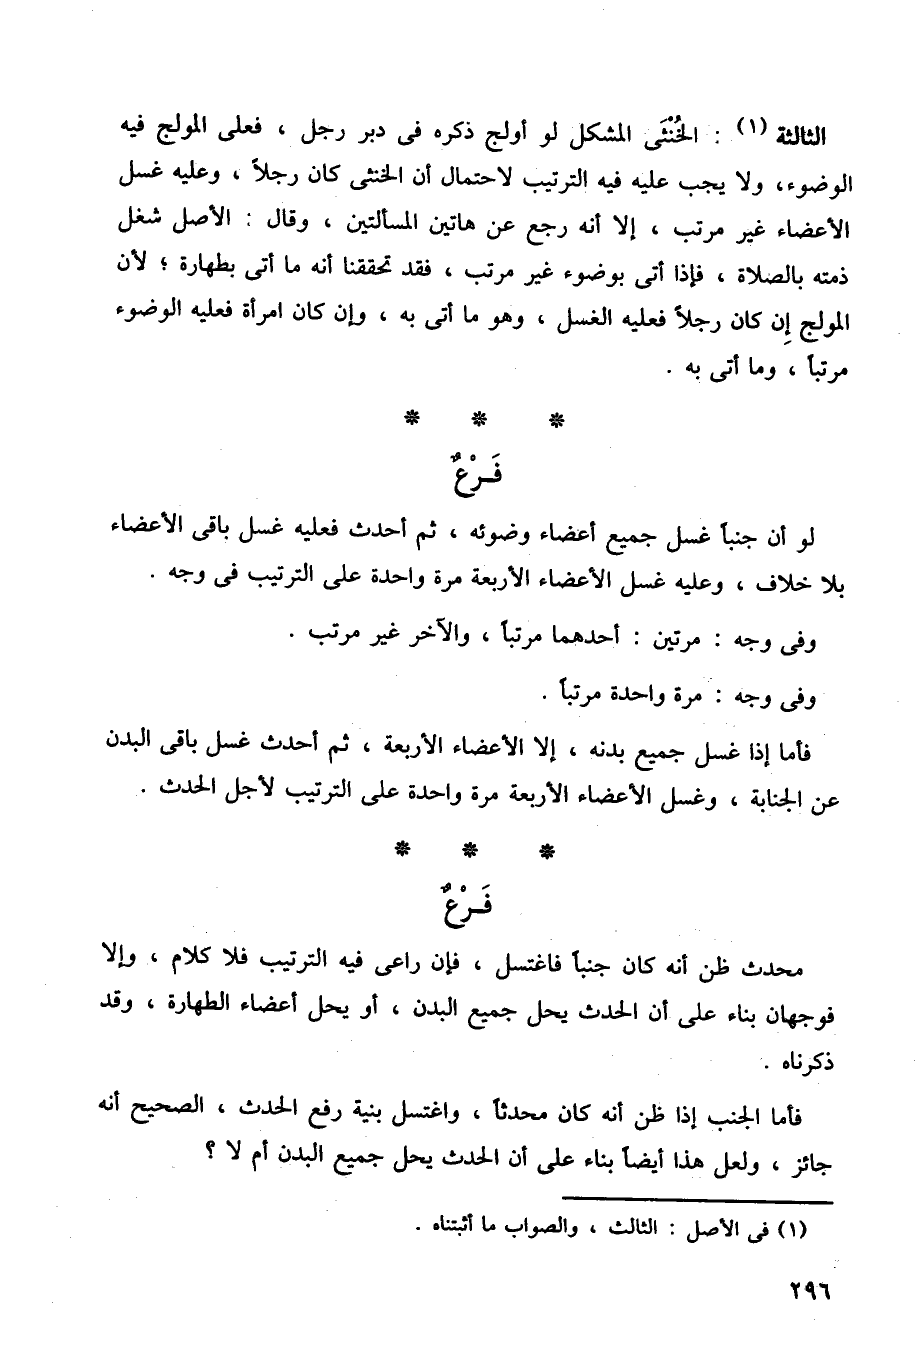 الثالثة (١) : الخُنْثَى المشكل لو أولج ذكره فى دبر رجل ، فعلى المولج فيه
الوضوء، ولا يجب عليه فيه الترتيب لاحتمال أن الخنثى كان رجلاً ، وعليه غسل
الأعضاء غير مرتب ، إلا أنه رجع عن هاتين المسألتين ، وقال : الأصل شغل
ذمته بالصلاة ، فإذا أتى بوضوء غير مرتب ، فقد تحققنا أنه ما أتى بطهارة ؛ لأن
المولج إن كان رجلاً فعليه الغسل ، وهو ما أتى به ، وإن كان امرأة فعليه الوضوء
مرتباً ، وما أتى به .
* * *
فَـرْعٌ
لو أن جنباً غسل جميع أعضاء وضوئه ، ثم أحدث فعليه غسل باقى الأعضاء
بلا خلاف ، وعليه غسل الأعضاء الأربعة مرة واحدة على الترتيب فى وجه .
وفى وجه : مرتين : أحدهما مرتباً ، والآخر غير مرتب .
وفى وجه : مرة واحدة مرتباً .
فأما إذا غسل جميع بدنه ، إلا الأعضاء الأربعة ، ثم أحدث غسل باقى البدن
عن الجنابة ، وغسل الأعضاء الأربعة مرة واحدة على الترتيب لأجل الحدث .
* * *
فَـرْعٌ
محدث ظن أنه كان جنباً فاغتسل ، فإن راعى فيه الترتيب فلا كلام ، وإلا
فوجهان بناء على أن الحدث يحل جميع البدن ، أو يحل أعضاء الطهارة ، وقد
ذكرناه .
فأما الجنب إذا ظن أنه كان محدثاً ، واغتسل بنية رفع الحدث ، الصحيح أنه
جائز ، ولعل هذا أيضاً بناء على أن الحدث يحل جميع البدن أم لا ؟
(١) فى الأصل : الثالث ، والصواب ما أثبتناه .
٢٩٦